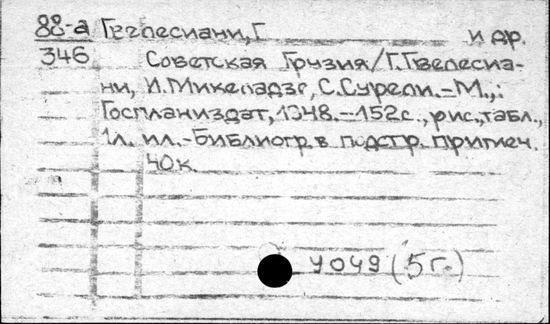 88-а Гвелесиани, Г. и др.
346 Советская Грузия/Г.Гвелесиа-
ни, И.Микеладзе, С.Сурели.-М.,:
Госпланиздат, 1948.-152с., рис., табл.,
1л. ил.-Библиогр. в подстр. примеч.
40к.
4049 (5 г.)